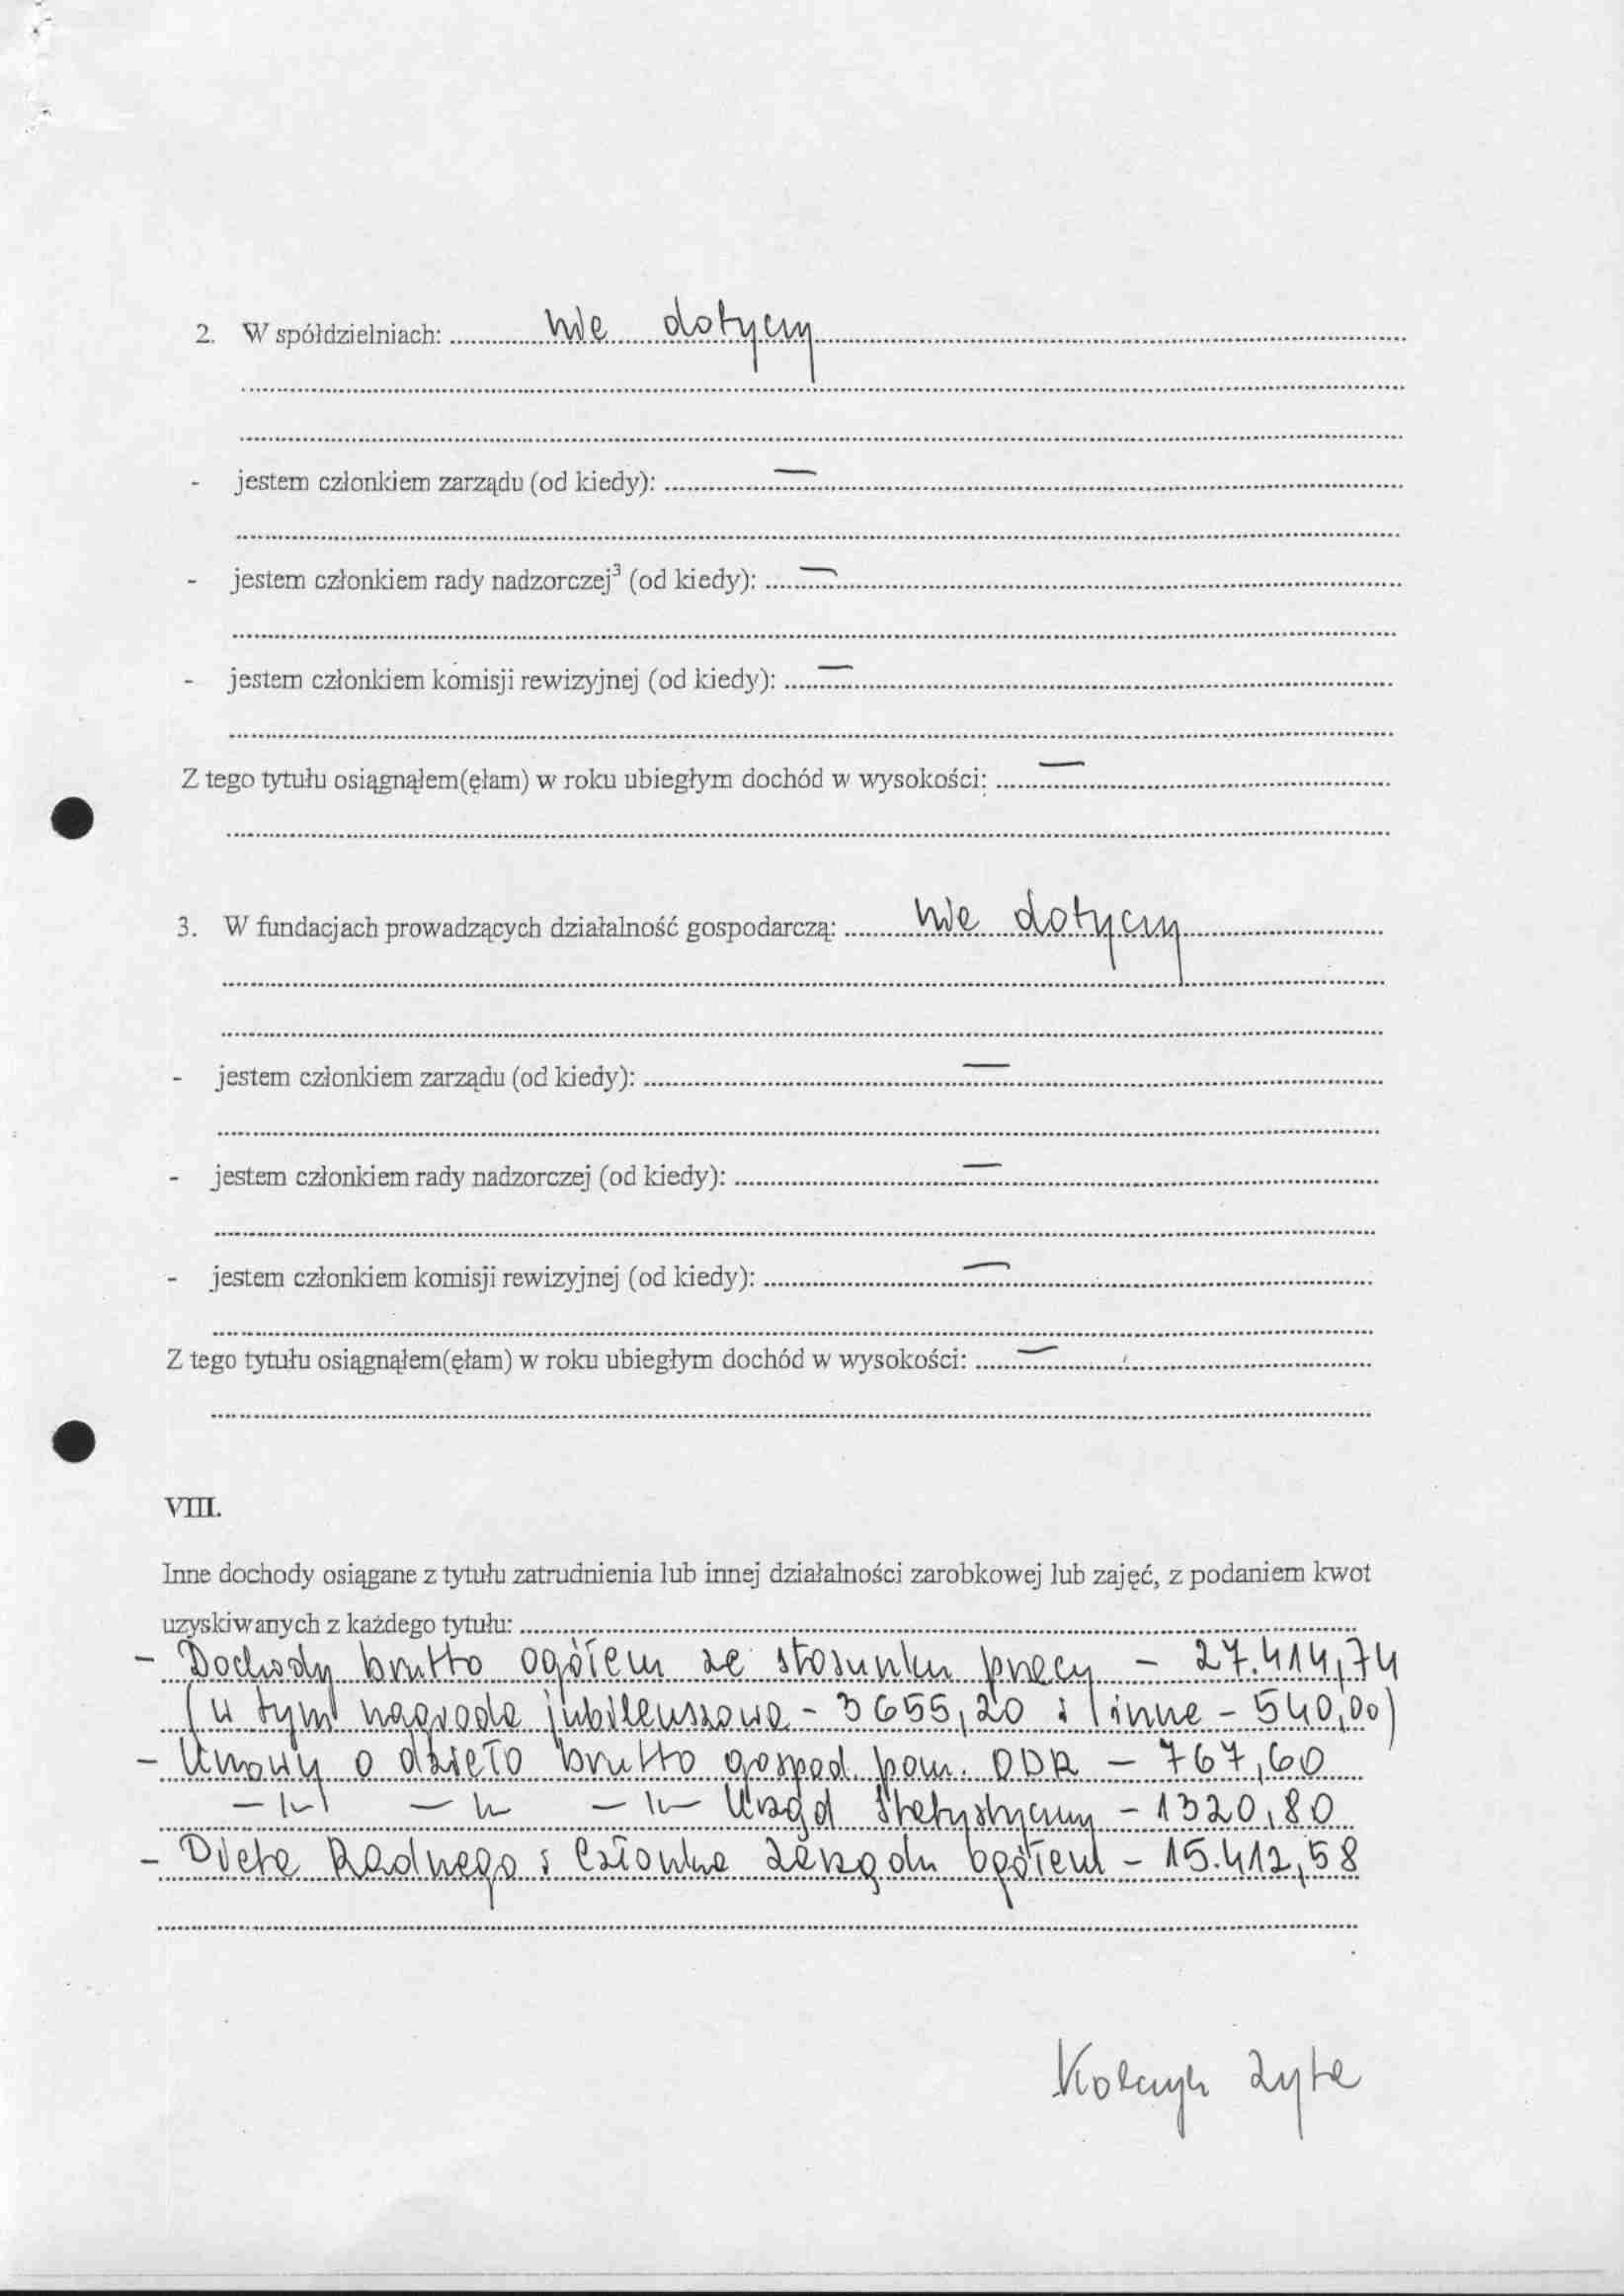 2. W spółdzielniach: nie dotyczy
- jestem członkiem zarządu (od kiedy): —
- jestem członkiem rady nadzorczej³ (od kiedy): —
- jestem członkiem komisji rewizyjnej (od kiedy): —
Z tego tytułu osiągnąłem(ęłam) w roku ubiegłym dochód w wysokości: —
3. W fundacjach prowadzących działalność gospodarczą: nie dotyczy
- jestem członkiem zarządu (od kiedy): —
- jestem członkiem rady nadzorczej (od kiedy): —
- jestem członkiem komisji rewizyjnej (od kiedy): —
Z tego tytułu osiągnąłem(ęłam) w roku ubiegłym dochód w wysokości: —
VIII.
Inne dochody osiągane z tytułu zatrudnienia lub innej działalności zarobkowej lub zajęć, z podaniem kwot
uzyskiwanych z każdego tytułu:
- Dochody brutto ogółem ze stosunku pracy - 27.414,74
(w tym nagroda jubileuszowa - 3655,20 i inne - 540,00)
- Umowy o dzieło brutto gospod. pom. ODR - 767,60
-"- -"- -"- Urząd Statystyczny - 1320,80
- Dieta Radnego i Członka Zarządu ogółem - 15.412,58
Zyta